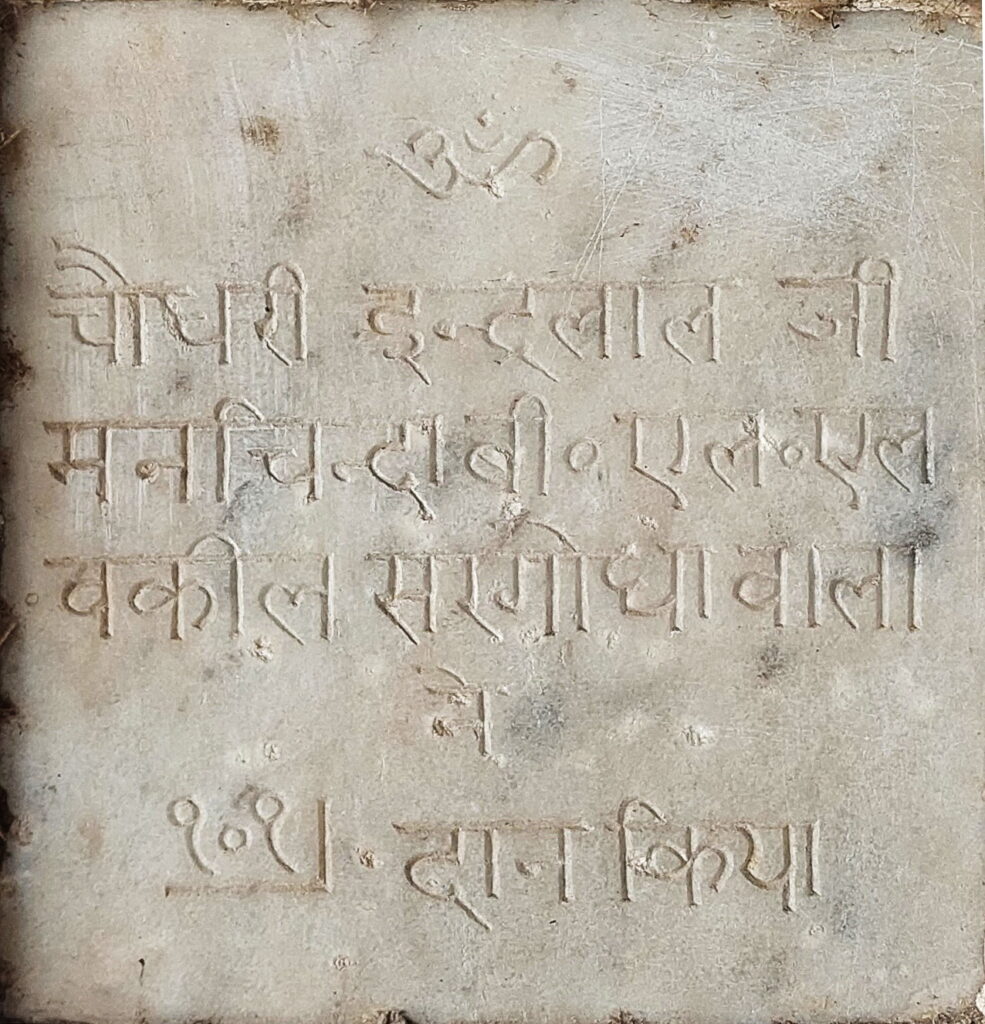 ॐ
चौधरी इन्द्रलाल जी
मनचिन्दा बी॰ एल॰एल
वकील सरगोधा वाला
ने
१०१) दान किया